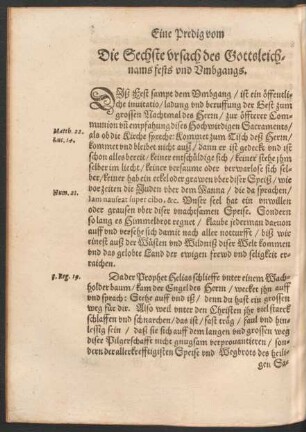 Eine Predig vom
Die Sechste vrsach des Gottsleich-
nams fests vnd Vmbgangs.
DIß Fest sampt dem Vmbgang / ist ein öffentli-
che inuitatio / ladung vnd beruffung der Gest zum
grossen Nachtmal des Herrn / zur öffterer Com-
munion vñ empfahung dises Hochwirdigen Sacraments /
Matth. 22.
Luc. 14.
als ob die Kirche sprech: Kommet zum Tisch deß Herrn /
kommet vnd bleibet nicht auß / dann er ist gedeckt vnd ist
schon alles bereit / keiner entschuldige sich / keiner stehe jhm
selber im liecht / keiner versaume oder verwarlose sich sel-
ber / keiner hab ein eckel oder grawen vber diser Speiß / wie
Num. 21.
vorzeiten die Juden vber dem Manna / die da sprachen /
Iam nauseat super cibo. &c. Vnser seel hat ein vnwillen
oder grausen vber diser vnachtsamen Speise. Sondern
so lang es Himmelbrot regnet / klaube jederman daruon
auff vnd versehe sich damit nach aller notturfft / biß wir
einest auß der Wüsten vnd Wildniß diser Welt kommen
vnd das gelobte Land der ewigen frewd vnd seligkeit er-
raichen.
3. Reg. 19.
Da der Prophet Helias schlieffe vnter einem Wach-
holder baum / kam der Engel des Herrn / weckt jhn auff
vnd sprach: Stehe auff vnd iß / denn du hast ein grossen
weg für dir. Also weil vnter den Christen jhr viel starck
schlaffen vnd schnarchen / das ist / fast träg / faul vnd hin-
lessig sein / daß sie sich auff dem langen vnd grossen weg
diser Pilgerschafft nicht gnugsam verprouiantieren / son-
dern der allerkrefftigisten Speise vnd Wegbrots des heili-
gen Sa-